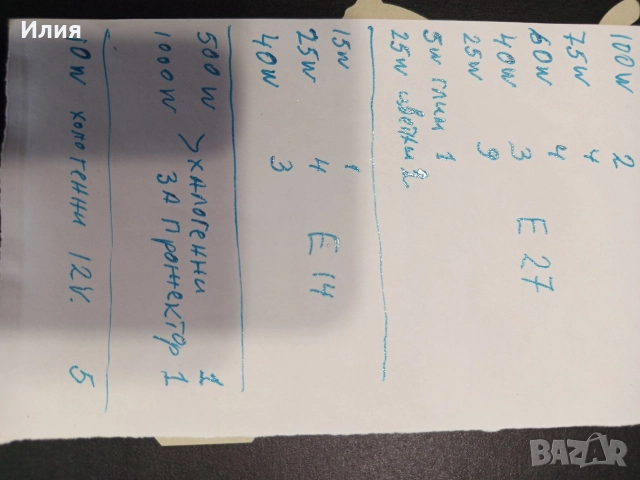 100W 2
75W 4
60W 4
40W 3 E 27
25W 9
5W глим 1
25W цветни 2
15W 1
25W 4 E 14
40W 3
500W > ХАЛОГЕННИ 1
1000W ЗА ПРОЖЕКТОР 1
10W хологенни 12V. 5
Илия
BAZAR